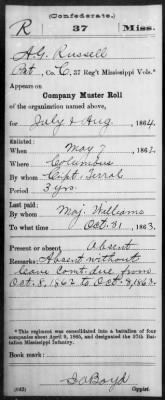 (Confederate.)
R 37 Miss.
A.G. Russell
Pvt, Co. C, 37 Reg't Mississippi Vols.*
Appears on
Company Muster Roll
of the organization named above,
for July & Aug, 1864.
Enlisted:
When May 7, 1862.
Where Columbus
By whom Capt. Terral
Period 3 yrs.
Last paid:
By whom Maj. Williams
To what time Oct. 31, 1863.
Present or absent Absent
Remarks: Absent without
leave Cont. due from
Oct. 8, 1862 to Oct. 8, 1863.
*This regiment was consolidated into a battalion of four
companies about April 9, 1865, and designated the 37th Bat-
talion Mississippi Infantry.
Book mark:
(642) Copyist.